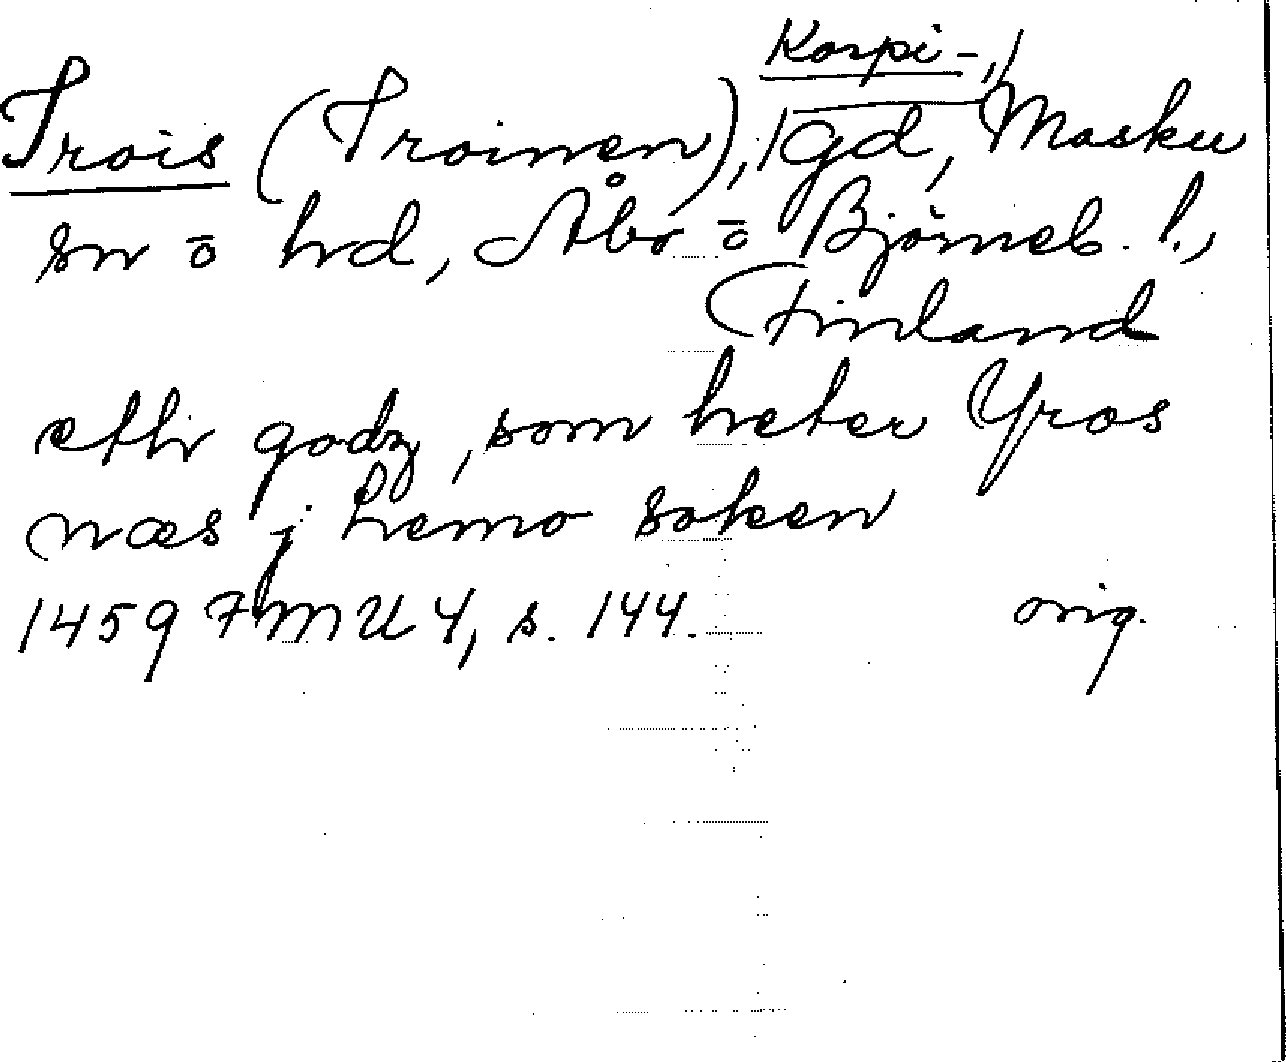 Korpi-,
Trois (Troinen), gd, Masku
sn o hd, Åbo o Björneb. l.,
Finland
eth godz, som heter Yros
næs j Lemo soken
1459 FMU 4, s. 144. orig.